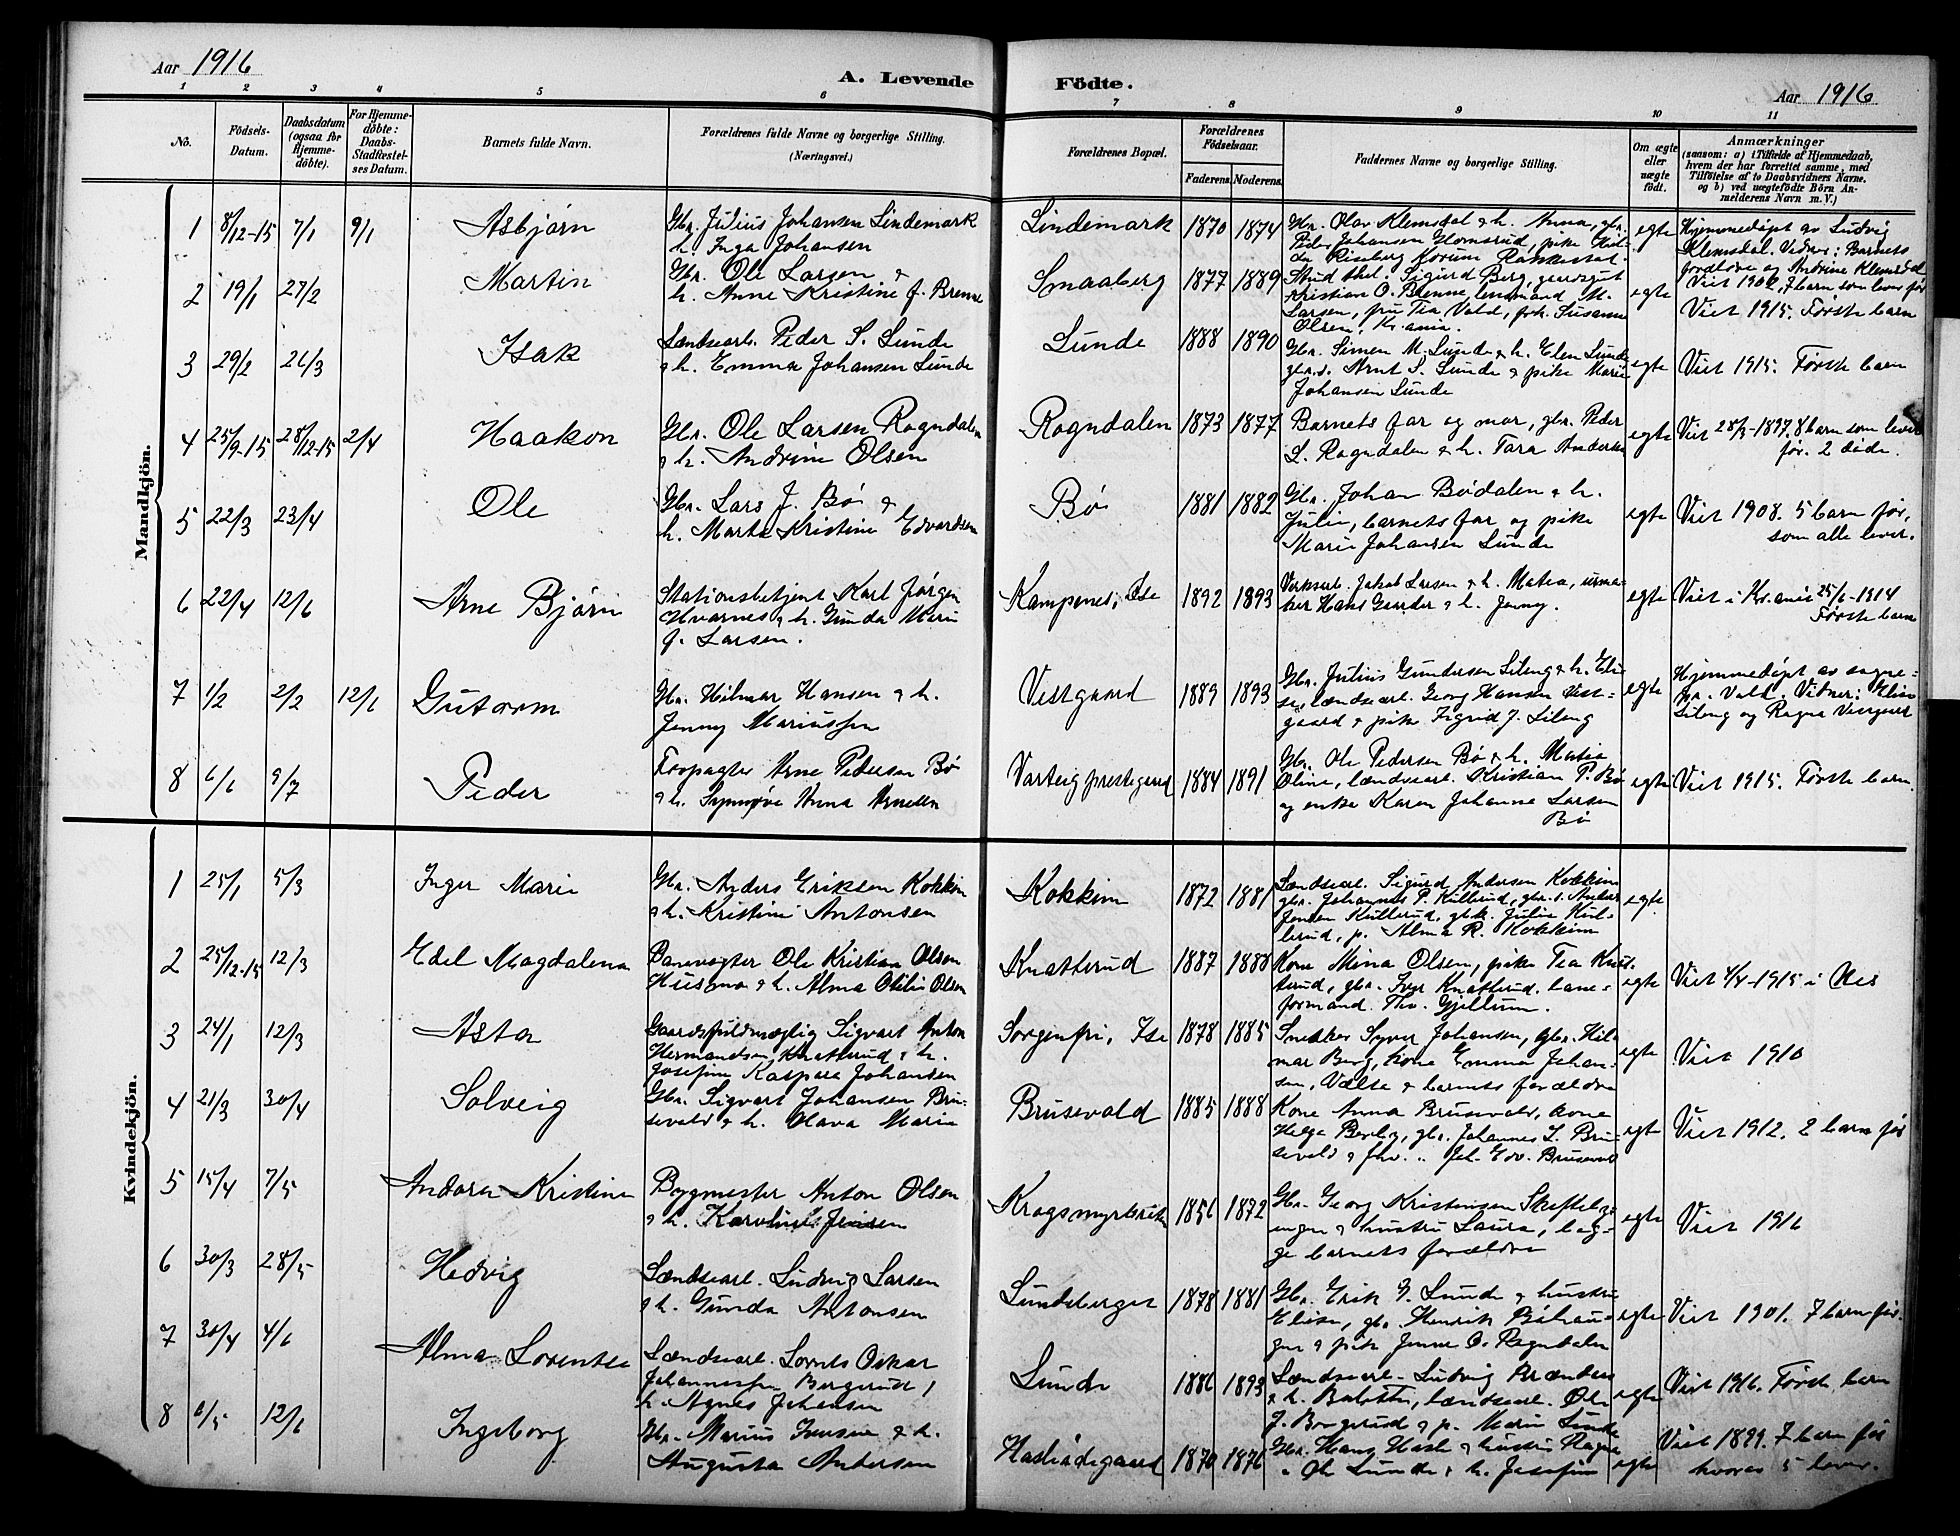 Aar 1916
A. Levende Födte.
Aar 1916
1 2 3 4 5 6 7 8 9 10 11
No.
Födsels-Datum.
Daabsdatum (ogsaa for Hjemme-döbte).
For Hjemme-döbte: Daabs-Stadfæstel-ses Datum.
Barnets fulde Navn.
Forældrenes fulde Navne og borgerlige Stilling.
(Næringsvei.)
Forældrenes Bopæl.
Forældrenes Födselsaar.
Faderens. Moderens.
Faddernes Navne og borgerlige Stilling.
Om ægte eller uægte födt.
Anmærkninger
(saasom: a) i Tilfælde af Hjemmedaab,
hvem der har forrettet samme, med
Tilföielse af to Daabsvidners Navne.
og b) ved uægtefödte Börn An-
melderens Navn m. V.)
Mandkjön.
1 8/12-15 7/1 9/1 Asbjørn
Gbr. Julius Johansen Lindemark
h. Inga Johansen
Lindemark 1870 1874
Gbr. Olav Klemsdal & h. Anna, gbr.
Peder Johansen Glomsrud, pike
egte
Hjemmedøpt av Ludvig
Klemsdal. Vidner: Barnets
forældre og Andrine Klemsdal
Viet 1902, 7 barn som lever før
2 19/1 27/2 Martin
Gbr. Ole Larsen &
h. Anne Kristine f. Brenne
Smaaberg 1877 1889
Stud. theol. Sigurd Berg, gaardsgut
Kristian O. Brenne, lensmand M.
Larsen, fru Tea Vold, frk. Susanne
Olsen, Kr.ania.
egte
Viet 1915. Første barn
3 29/2 26/3 Isak
Landsearb. Peder S. Lunde
& h. Emma Johansen Lunde
Lunde 1888 1890
Gbr. Simen M. Lunde & h. Elen Lunde,
gbr.s. Arnt S. Lunde & pike Marie
Johansen Lunde
egte
Viet 1915. Første barn
4 25/9-15 28/12-15 2/4 Haakon
Gbr. Ole Larsen Rogndalen
& h. Andrine Olsen
Rogndalen 1873 1877
Barnets far og mor, gbr. Peder
L. Rogndalen & h. Tara Andersen
egte
Viet 28/3-1897. 8 barn som lever
før. 2 døde.
5 22/3 23/4 Ole
Gbr. Lars J. Bø &
h. Marta Kristine Edvardsen
Bø 1881 1882
Gbr. Johan Bødalen & h.
Julie, barnets far og pike
Marie Johansen Lunde
egte
Viet 1908. 5 barn før,
som alle lever.
6 22/4 12/6 Arne Bjørn
Stationsbetjent Karl Jørgen
Hvarnes & h. Gunda Marie
f. Larsen.
Kampenes, Ise 1892 1893
Verksarb. Jakob Larsen & h. Matea, urma-
ker Hans Gaarder & h. Jenny.
egte
Viet i Kr.ania 25/6-1914
Første barn
7 1/2 2/2 12/6 Gutorm
Gbr. Hilmar Hansen & h.
Jenny Mariussen
Vestgaard 1889 1893
Gbr. Julius Gundersen Lileng & h. Eli-
se, landsearb. Georg Hansen Vest-
gaard & pike Sigrid J. Lileng
egte
Hjemmedøpt av sogne-
pr. Vold. Vidner: Elise
Lileng og Ragna Vestgaard
8 6/6 9/7 Peder
Forpagter Arne Pedersen Bø
& h. Synnøve Anna
Varteig prestegaard 1884 1891
Gbr. Ole Pedersen Bø & h. Matea
Oline, landsearb. Kristian P. Bø
og enke Karen Johanne Larsen
Bø
egte
Viet 1915. Første barn.
Kvindekjön.
1 25/1 5/3 Inger Marie
Gbr. Anders Eriksen Kokkim
& h. Kristine Antonsen
Kokkim 1872 1881
Landsearb. Sigurd Andersen Kokkim
gbr. Johannes P. Kullerud, gbr.s. Anders
Jensen Kullerud, gbk. Julie Kul-
lerud, p. Alma R. Kokkim
egte
2 25/12-15 12/3 Edel Magdalena
Banevogter Ole Kristian Olsen
Husmo & h. Alma Otilie Olsen
Knatterud 1887 1888
Kone Mina Olsen, pike Tea Knat-
terud, gbr. Iver Knatterud, bane-
formand Thv. Gjellum.
egte
Viet 4/4-1915 i Aas
3 24/1 12/3 Asta
Gaardsfuldmægtig Sigvart Anton
Hermandsen Knatterud & h.
Josefine Kaspara Johansen
Sorgenfri, Ise 1878 1885
Snedker Syver Johansen, gbr. Hil-
mar Berg, kone Emma Johan-
sen, Vælte & barnets forældre
egte
Viet 1910
4 21/3 30/4 Solveig
Gbr. Sigvart Johansen Bru-
sevold & h. Olava Marie
Brusevold 1885 1888
Kone Anna Brusevold, kone
Helga Berby, gbr. Johannes L. Bru-
sevold & fhv. " Joh. Edv. Brusevold
egte
Viet 1912. 2 barn før
5 15/4 7/5 Andora Kristine
Bygmester Anton Olsen
& h. Karoline Jensen
Krogsmyrbraaten 1856 1872
Gbr. Georg Kristensen
& hustru Laura, beg-
ge barnets forældre
egte
Viet 1916
6 30/3 28/5 Hedvig
Landsearb. Ludvig Larsen
& h. Gunda Antonsen
Lundeberget 1878 1881
Gbr. Erik G. Lunde & hustru
Elise, gbr. Henrik Bøhau-
gen & pike Jenne O. Rogndalen
egte
Viet 1901. 7 barn før.
7 30/4 4/6 Alma Lorentse
Landsearb. Lorents Oskar
Johannessen Bergerud,
h. Agnes Johansen
Lunde 1886 1893
Landsearb. Ludvig Brænden
& h. landsearb. Ole
J. Bergerud & p. Marie Lunde
egte
Viet 1916. Første barn
8 6/5 12/6 Ingeborg
Gbr. Marius Jensen & h.
Augusta Andersen
Hasleødegaard 1870 1876
Gbr. Hans Hasle & hustru Ragna
" Ole Lunde & h. Josefine
egte
Viet 1899. 7 barn før
hvorav 5 lever.